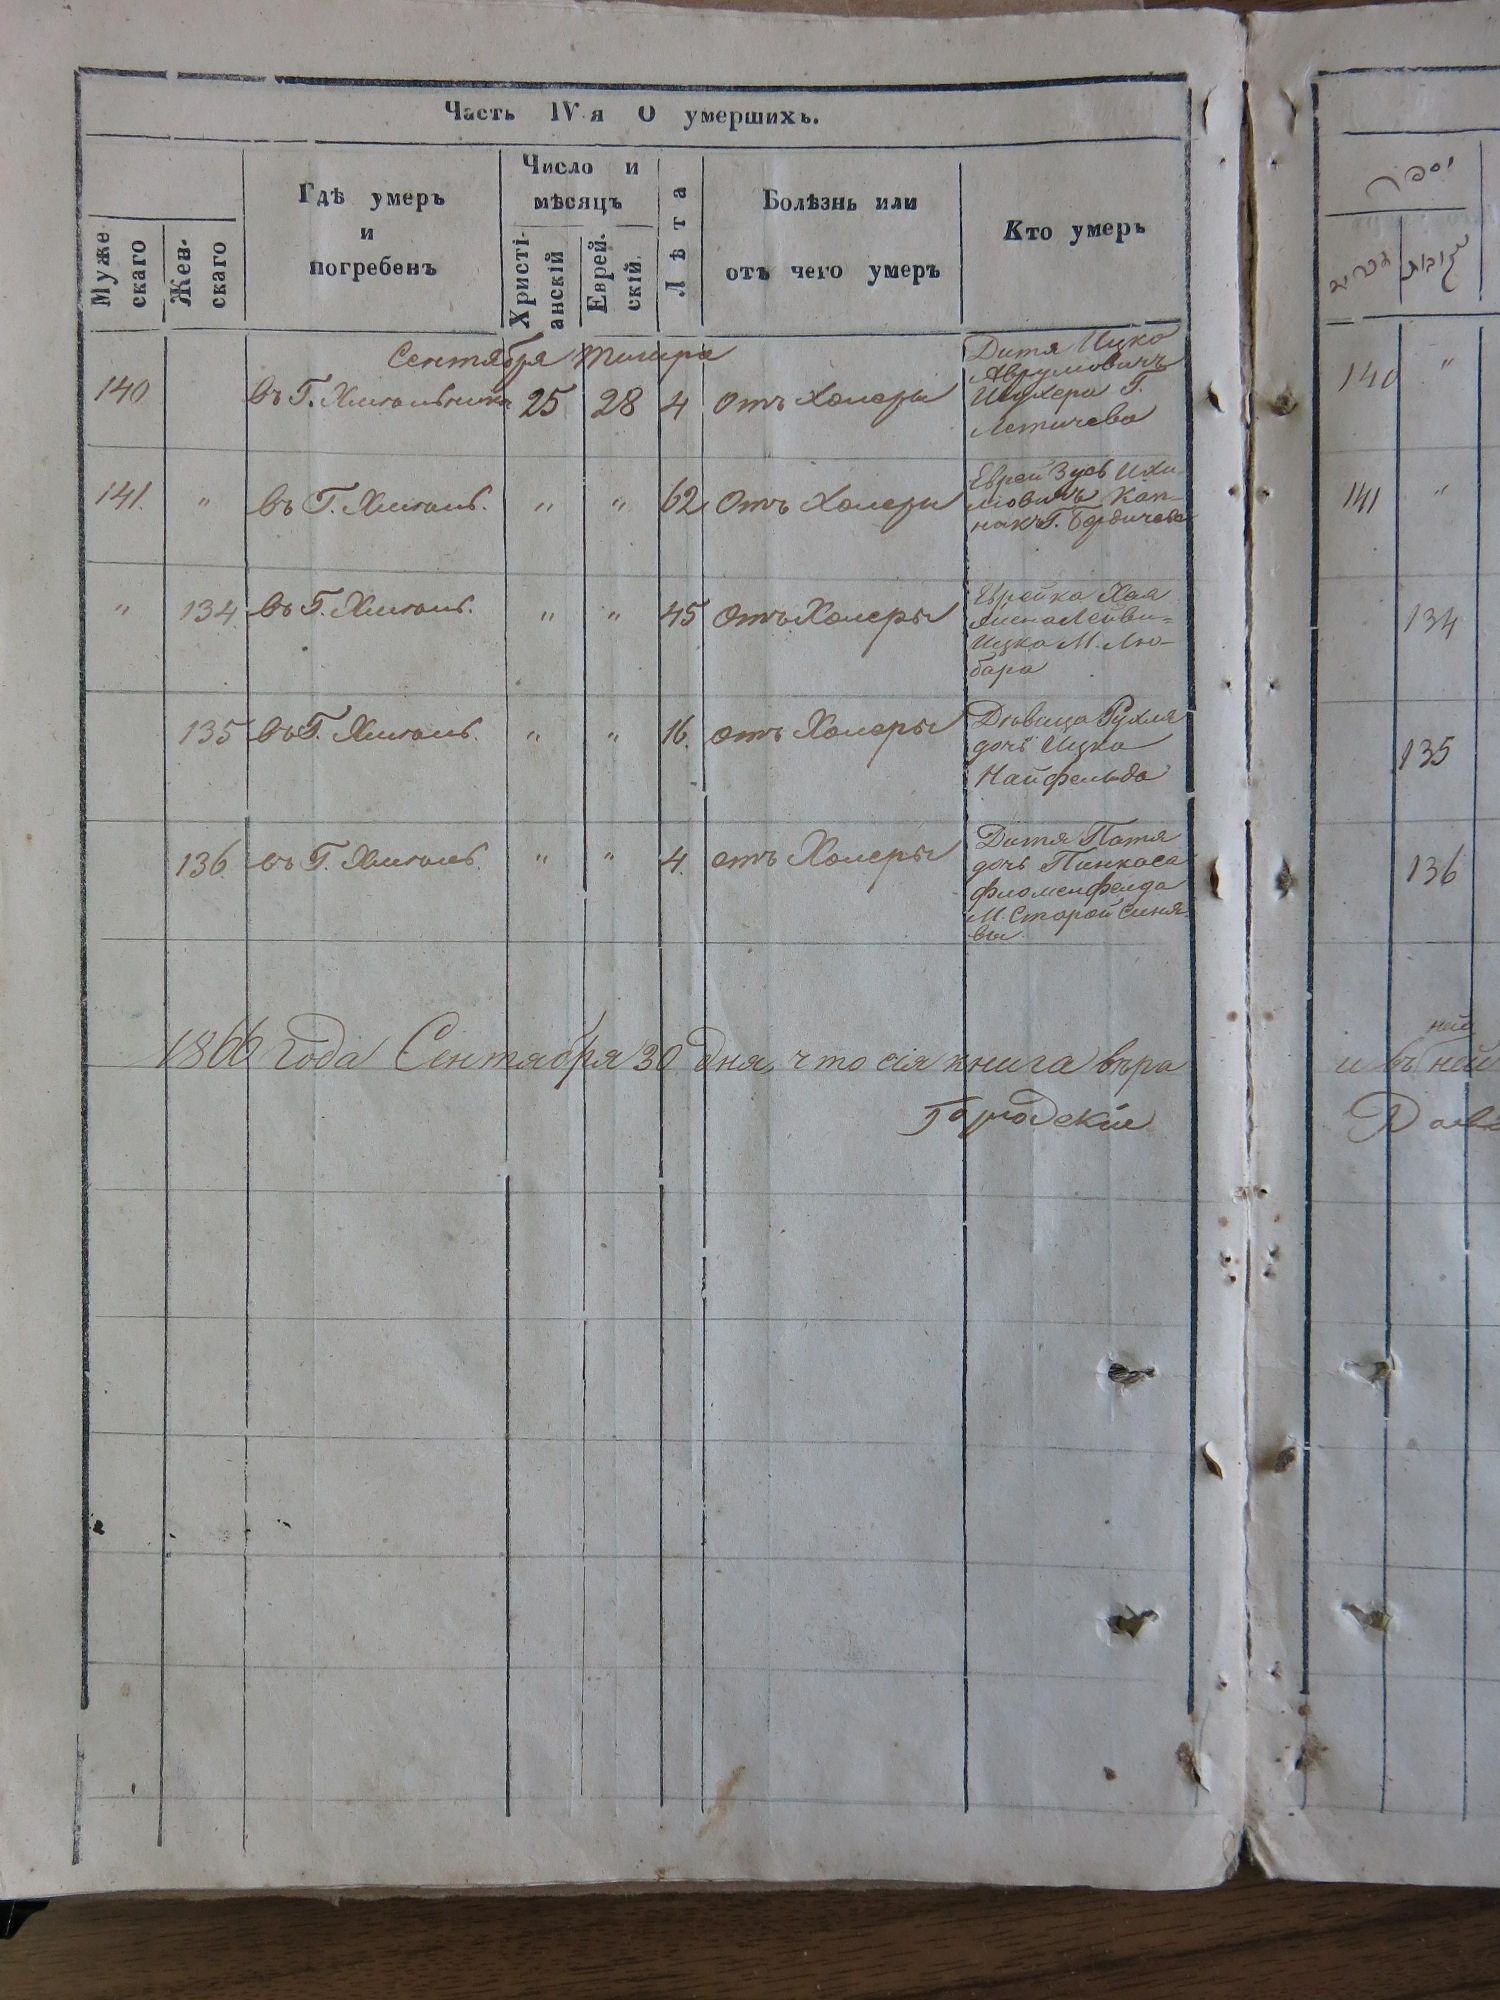 Часть IV я О умершихъ.
Муже скаго
Жен. скаго
Гдѣ умеръ
и
погребенъ
Число и
мѣсяцъ
Христі анскій
Еврей. скій.
Лѣта
Болѣзнь или
отъ чего умеръ
Кто умеръ
Сентября Тишра
140 въ Г. Хмѣльника 25 28 4 отъ Холеры
Дитя Ицко
Аврумовичъ
Г.
Летичева
141. " въ Г. Хмѣль. " " 62 отъ Холеры
Еврей
Г. Бердичева
" 134 въ Г. Хмѣль. " " 45 отъ Холеры
Еврейка Хая
Ицка М. Лю-
бара
135 въ Г. Хмѣль. " " 16. отъ Холеры
Дѣвица Рухля
дочь Ицка
Найфельда
136. въ Г. Хмѣль. " " 4. отъ Холеры
Дитя
дочь Пинкаса
М. Старой Синя-
вы
1866 года Сентября 30 дня, что сія книга вѣра
Городскій
140 "
141 "
134
135
136
ней
и въ ней